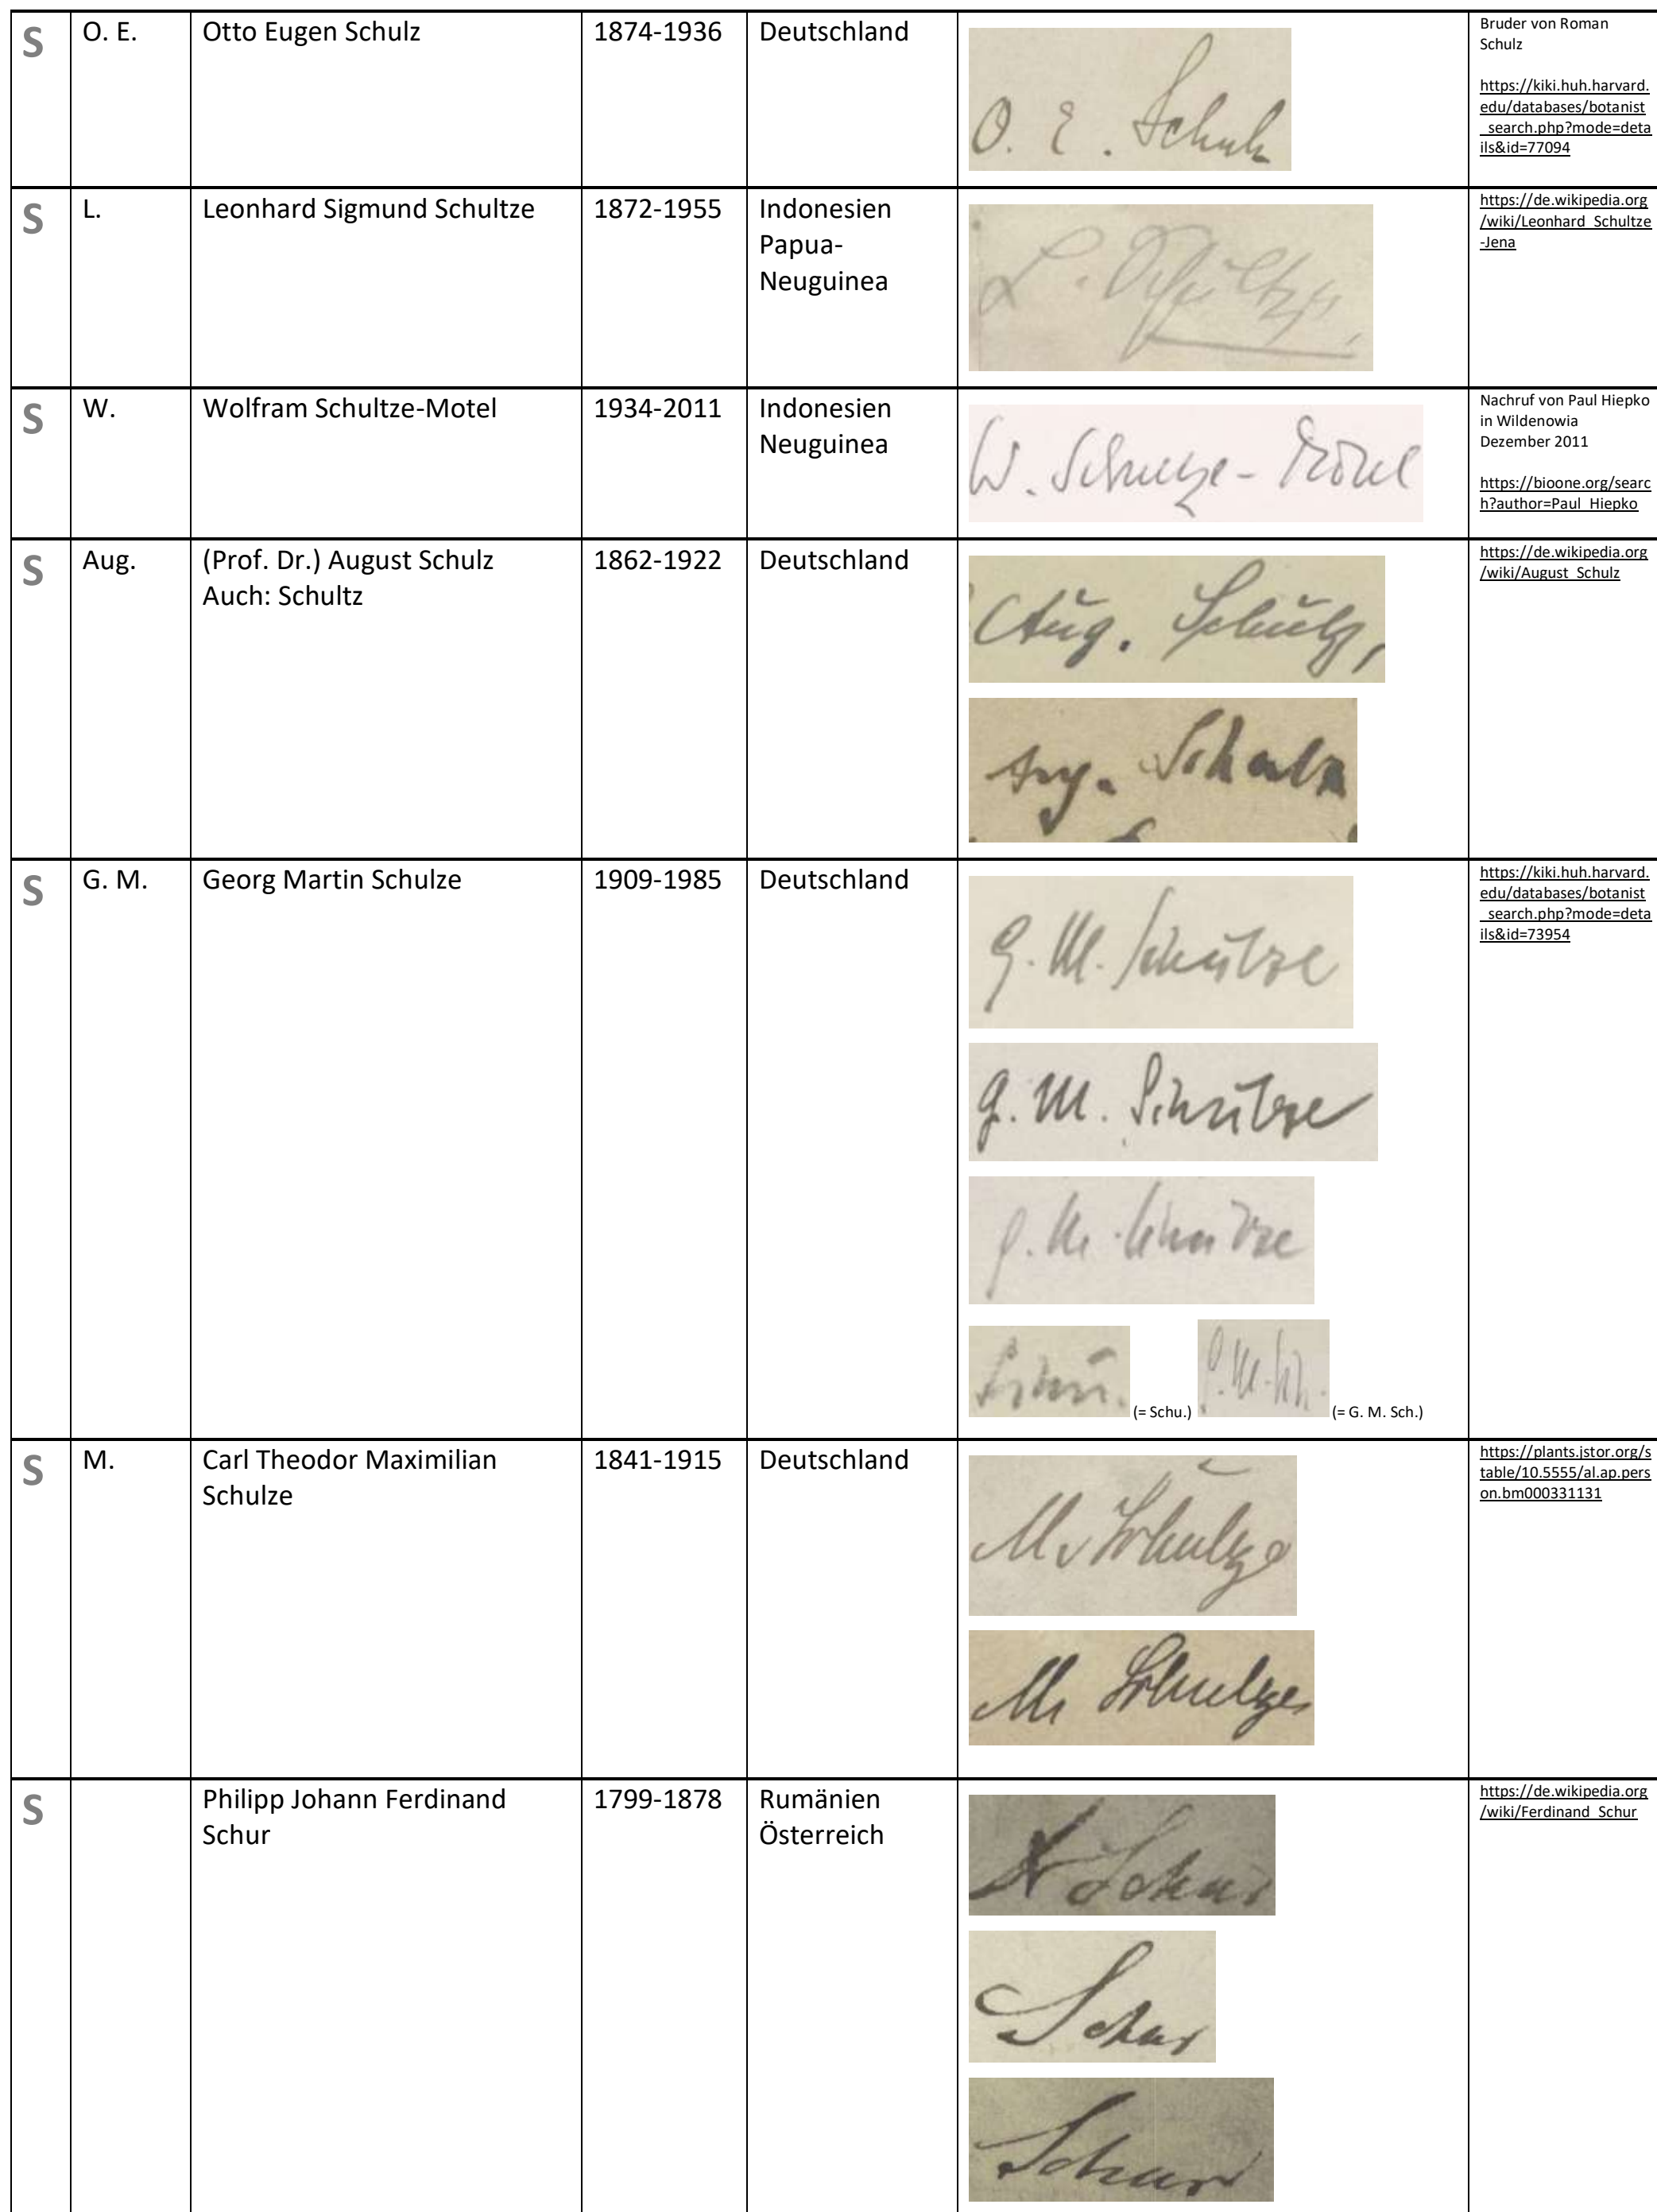 S O. E. Otto Eugen Schulz 1874-1936 Deutschland
O. E. Schulz
Bruder von Roman
Schulz
https://kiki.huh.harvard.
edu/databases/botanist
_search.php?mode=deta
ils&id=77094
S L. Leonhard Sigmund Schultze 1872-1955 Indonesien
Papua-
Neuguinea
L. Schultze
https://de.wikipedia.org
/wiki/Leonhard_Schultze
-Jena
S W. Wolfram Schultze-Motel 1934-2011 Indonesien
Neuguinea
W. Schultze-Motel
Nachruf von Paul Hiepko
in Wildenowia
Dezember 2011
https://bioone.org/searc
h?author=Paul_Hiepko
S Aug. (Prof. Dr.) August Schulz 1862-1922 Deutschland
Auch: Schultz
Aug. Schulz,
Aug. Schulz
https://de.wikipedia.org
/wiki/August_Schulz
S G. M. Georg Martin Schulze 1909-1985 Deutschland
G. M. Schulze
G. M. Schulze
G. M. Schulze
Schu. (= Schu.) G. M. Sch. (= G. M. Sch.)
https://kiki.huh.harvard.
edu/databases/botanist
_search.php?mode=deta
ils&id=73954
S M. Carl Theodor Maximilian 1841-1915 Deutschland
Schulze
M. Schulze
M. Schulze
https://plants.jstor.org/s
table/10.5555/al.ap.pers
on.bm000331131
S Philipp Johann Ferdinand 1799-1878 Rumänien
Schur Österreich
Schur
Schur
Schur
https://de.wikipedia.org
/wiki/Ferdinand_Schur